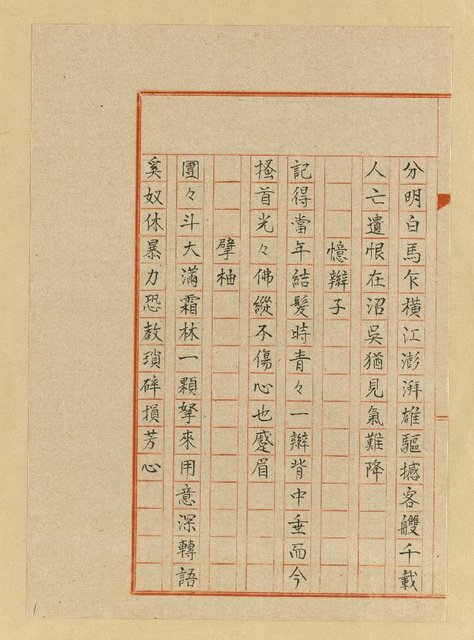 分明白馬乍橫江澎湃雄驅撼客艭千載
人亡遺恨在沼吳猶見氣難降
憶辮子
記得當年結髮時青々一辮背中垂而今
搔首光々佛縱不傷心也蹙眉
擘柚
團々斗大滿霜林一顆拏來用意深轉語
奚奴休暴力恐教瑣碎損芳心